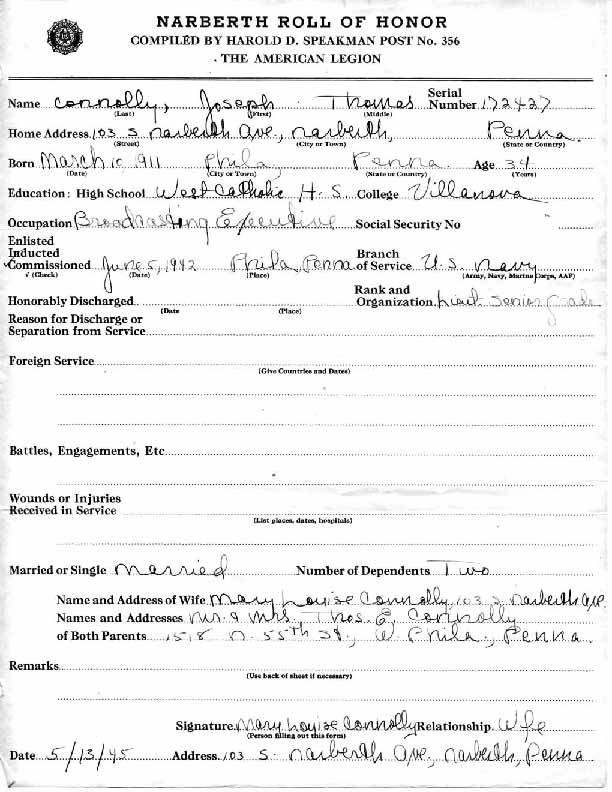 NARBERTH ROLL OF HONOR
COMPILED BY HAROLD D. SPEAKMAN POST No. 356
THE AMERICAN LEGION
Name Connolly, Joseph Thomas Serial Number 172427
(Last) (First) (Middle)
Home Address 103 S. Narberth Ave, Narberth, Penna.
(Street) (City or Town) (State or Country)
Born March 10, 1911 Phila Penna. Age 34
(Date) (City or Town) (State or Country) (Years)
Education: High School West Catholic H. S. College Villanova
Occupation Broadcasting Executive Social Security No
Enlisted
Inducted Branch
✓Commissioned June 5, 1942 Phila, Penna of Service U. S. Navy
√ (Check) (Date) (Place) (Army, Navy, Marine Corps, AAF)
Rank and
Honorably Discharged Organization Lieut. Senior grade
(Date (Place)
Reason for Discharge or
Separation from Service
Foreign Service
(Give Countries and Dates)
Battles, Engagements, Etc
Wounds or Injuries
Received in Service
(List places, dates, hospitals)
Married or Single Married Number of Dependents Two
Name and Address of Wife Mary Louise Connolly, 103 S. Narberth Ave.
Names and Addresses Mr. & Mrs. Thos. E. Connolly
of Both Parents 1518 N. 55th St., W. Phila., Penna.
Remarks
(Use back of sheet if necessary)
Signature Mary Louise Connolly Relationship Wife
(Person filling out this form)
Date 5/13/45 Address 103 S. Narberth Ave, Narberth, Penna